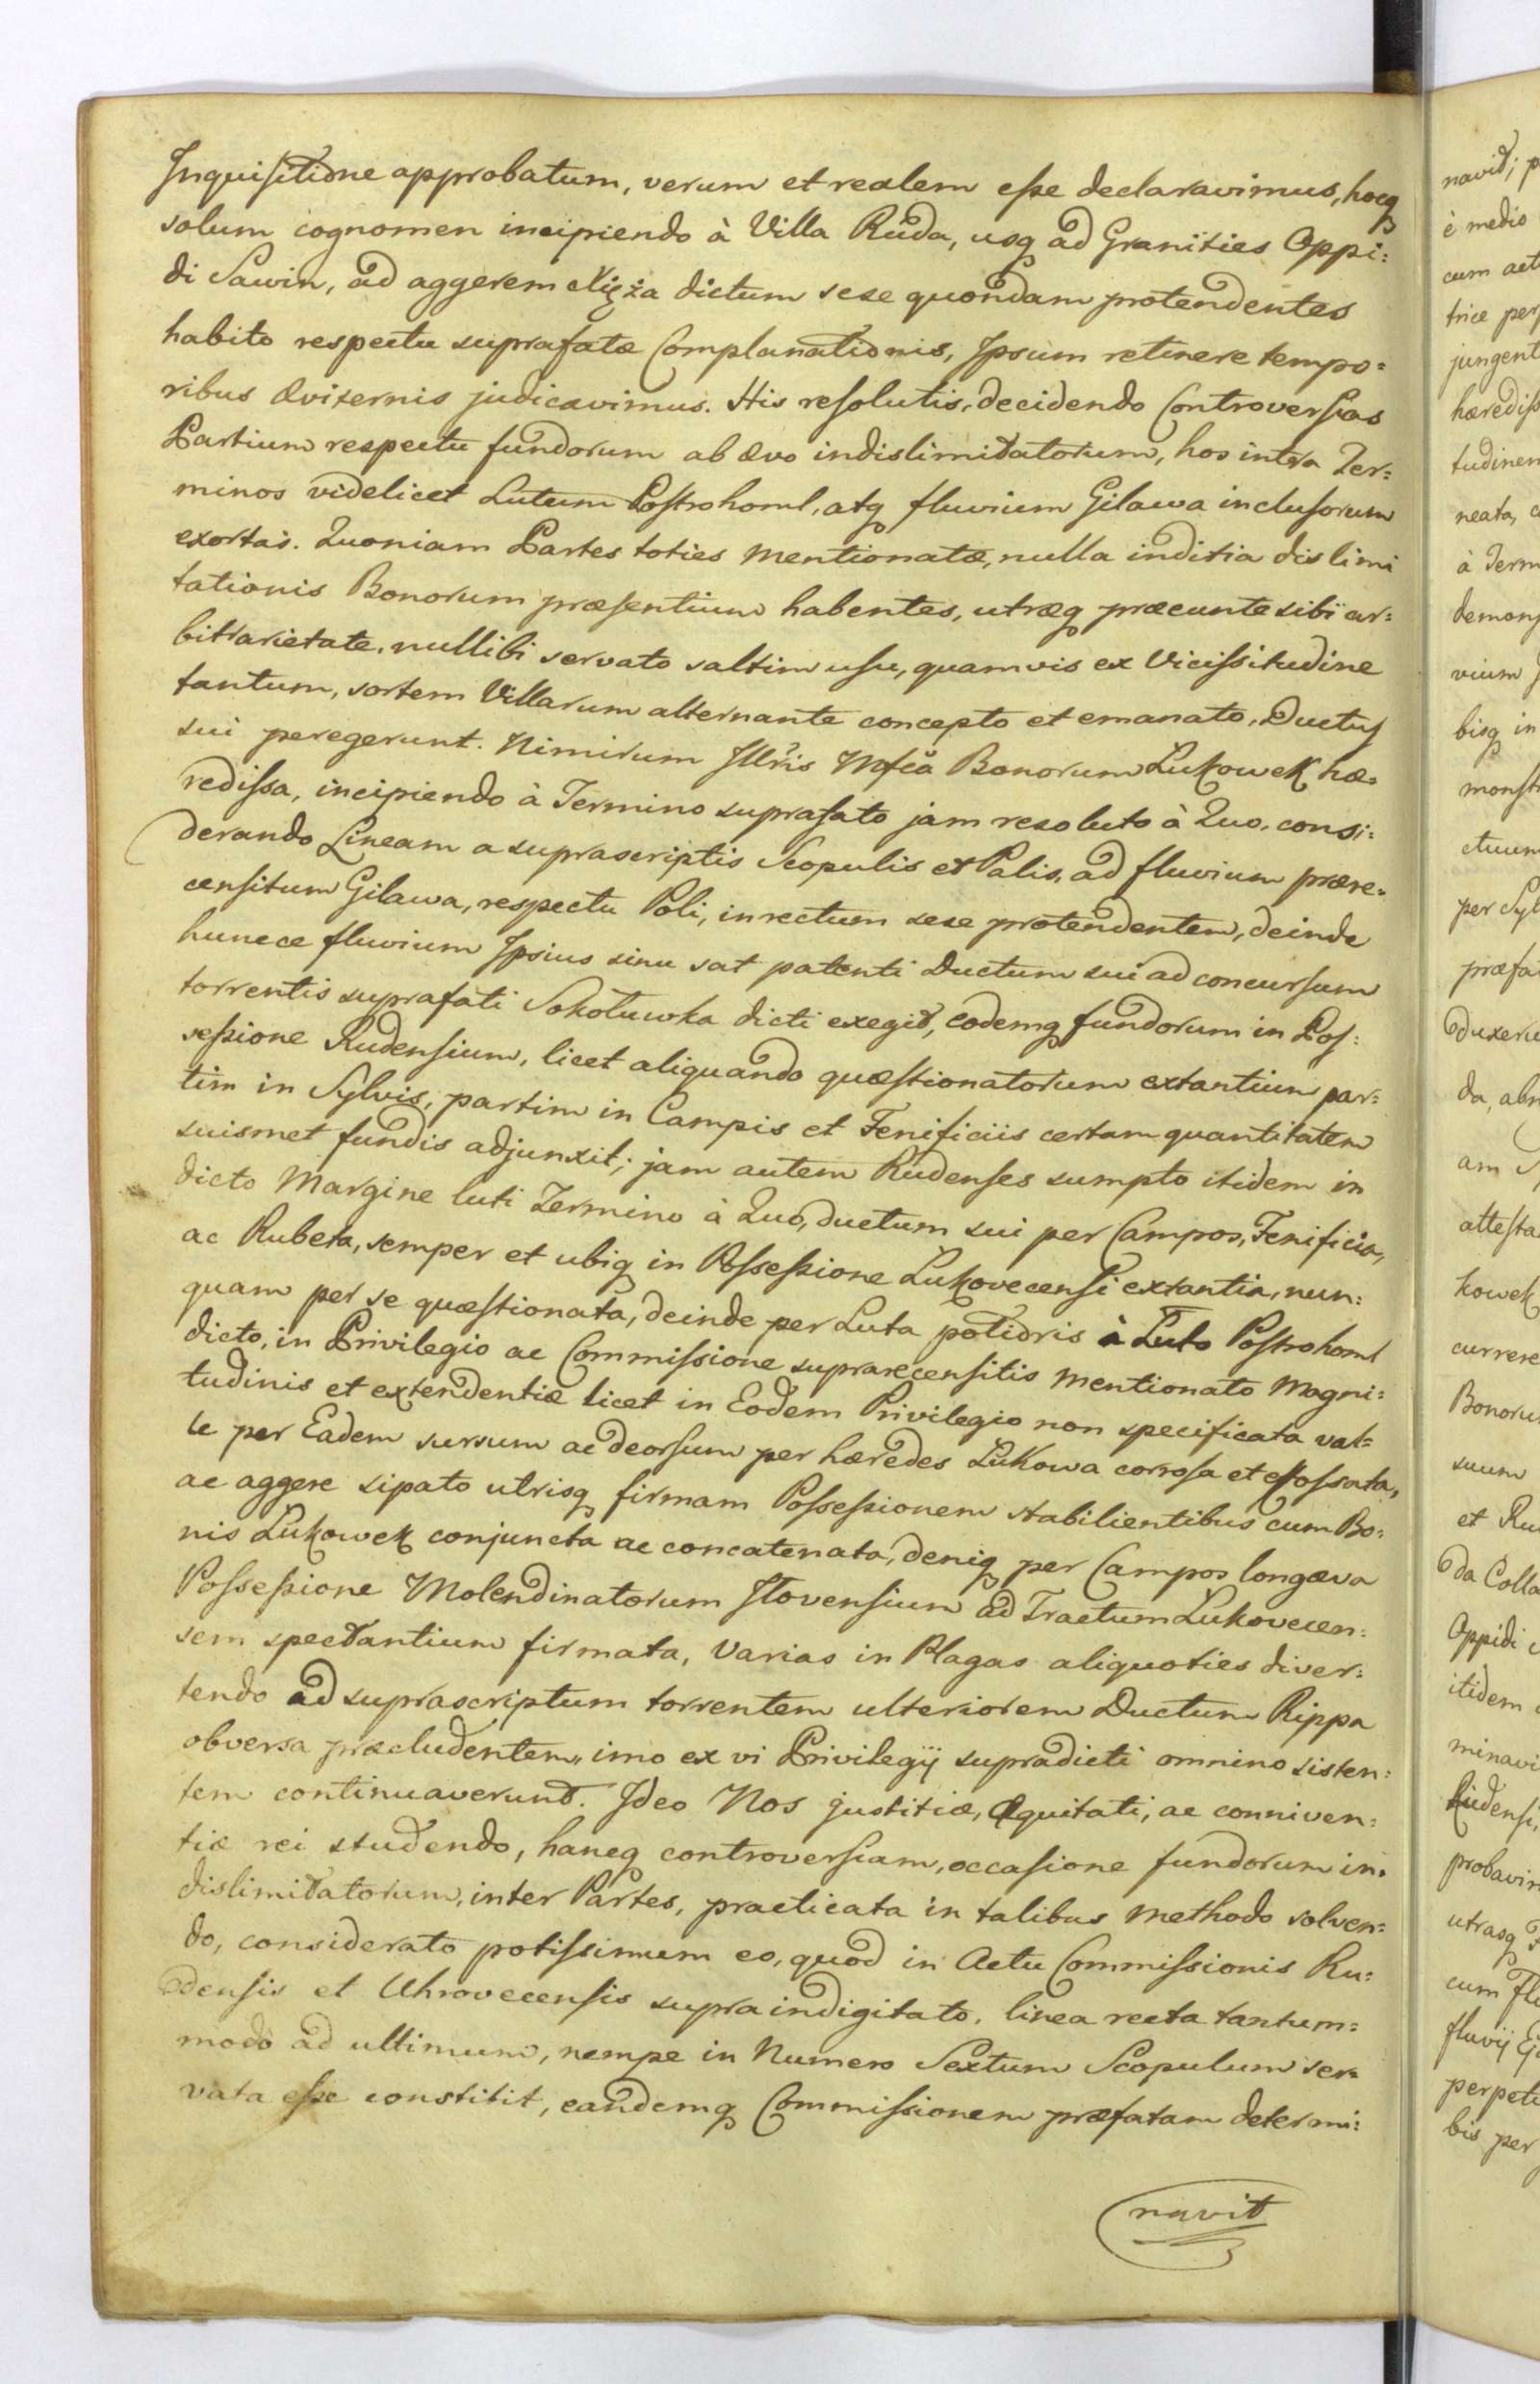 Inquisitione approbatum, verum et realem esse declaravimus, hocq
solum cognomen incipiendo à Villa Ruda, usq ad Granities Oppi:
di Sawin, ad aggerem Niza dictum sese quondam protendentes
habito respectu suprafatæ Complanationis, Ipsum retinere tempo:
ribus æviternis judicavimus. His resolutis, decidendo Controversias
Partium respectu fundorum ab ævo indislimitatorum, hos intra Ter:
minos videlicet Lutum Postrohoml, atq fluvium Gilawa inclusorum
exortas. Quoniam Partes toties mentionatæ, nulla inditia dislimi
tationis Bonorum præsentium habentes, utræq præeunte sibi ar:
bitrarietate, nullibi servato saltim usu, quamvis ex Vicissitudine
tantum, sortem Villarum alternante concepto et emanato, Ductus
sui peregerunt. Nimirum Illris Mfca Bonorum Lukowek hæ:
redissa, incipiendo à Termino suprafato jam resoluto à Quo, consi:
derando Lineam a suprascriptis Scopulis et Palis, ad fluvium prære:
censitum Gilawa, respectu Poli, in rectum sese protendentem, deinde
huncce fluvium Ipsius sinu sat patenti Ductum sui ad concursum
torrentis suprafati Sokoluwka dicti exegit, eodemq fundorum in Pos:
sessione Rudensium, licet aliquando quæstionatorum extantium par:
tim in Sylvis, partim in Campis et Fenificiis certam quantitatem
suismet fundis adjunxit; jam autem Rudenses sumpto itidem in
dicto Margine luti Termino à Quo, ductum sui per Campos, Fenificia,
ac Rubeta, semper et ubiq in Possessione Lukovecensi extantia, nun:
quam per se quæstionata, deinde per Luta potioris à Luto Postrohoml
dicto, in Privilegio ac Commissione suprarecensitis mentionato Magni:
tudinis et extendentiæ licet in Eodem Privilegio non specificata val:
le per Eadem sursum ac deorsum per hæredes Lukowa corrosa et effossata,
ac aggere sipato utrisq firmam Possessionem stabilientibus cum Bo:
nis Lukowek conjuncta ac concatenata, deniq per Campos longæva
Possessione Molendinatorum Stovensium ad Tractum Lukovecen:
sem spectantium firmata, Varias in Plagas aliquoties diver:
tendo ad suprascriptum torrentem ulteriorem Ductum Rippa
obversa præcludentem, imo ex vi Privilegij supradicti omnino sisten:
tem continuaverunt. Ideo Nos justitiæ, Æquitati, ac conniven:
tiæ rei studendo, hancq controversiam, occasione fundorum in:
dislimitatorum, inter Partes, practicata in talibus methodo solven:
do, considerato potissimum eo, quod in Actu Commissionis Ru:
densis et Uhrovecensis supra indigitato, linea recta tantum:
modo ad ultimum, nempe in Numero Sextum Scopulum ser:
vata esse constitit, eandemq Commissionem præfatam determi:
navit
navit; p
è medio
cum act
trice per
jungent
hærediss
tudinem
neata,
à Term
demons
vium
bisq in
monst
ctuum
per Syl
præfa
duxeru
da, abn
am
attesta
kowek
currere
Bonoru
suum
et Ru
da Colla
Oppidi
itidem
minavi
Rudensi,
probavim
utrasq
cum Flu
fluvij
perpetu
bis per